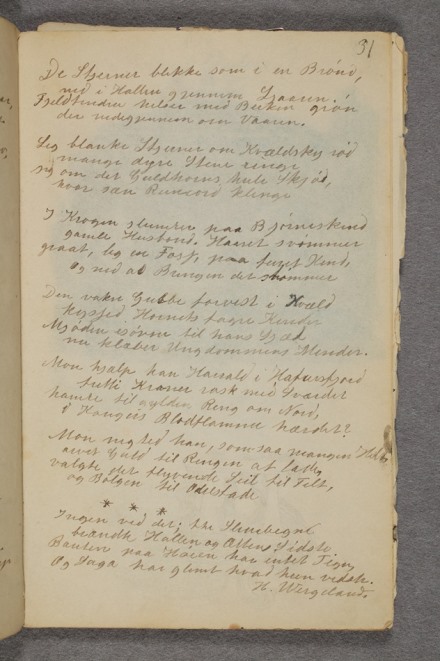 31
De Stjerner blikke som i en Brønd,
ned i Hallen gjennem Ljaaren.
Fjeldtinden hilser med Birken grøn
der nedigjennem om Vaaren.
Lig blanke Stjerner om Kvældsky rød
mange dyre Stene ringe
sig om det Guldhorns hule Skjød,
hvor san Runeord klinge
I Krogen slumrer paa Bjørneskind
gamle Husbond. Haaret svømmer
graat, lig en Fos, paa furet Kind,
og ned ad Bringen det strømmer
Den vakre Gubbe forvist i Kvæld
kyssed Hornets fagre Kinder
Mjøden
nu klæber Ungdommens Minder.
Mon hjalp han Harald i Hafursfjord
futti Kroner rask med Sværder
hamre til gylden Ring om Nord,
i Kongens Blodflamme hærdet?
Mon nyted han, som saa mangen Helt,
arvet Guld til Ringen at fatte,
valgte det flyvende Seil til Telt,
og Bølgen til Odelsfade
* * *
Ingen ved det; tre Slinebegne
brændte Hallen og Atten Sidste
Bauten paa Høien har intet Tegn,
Og Saga har glemt hvad hun vidste.
H. Wergeland.